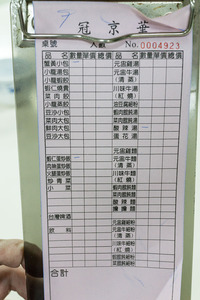 7
冠京華
桌號 人數 No.0004923
品名 數量 單價 總價 品名 數量 單價 總價
蟹黃小包 元盅雞湯
小籠湯包 元盅牛湯
小籠蝦餃 (清蒸)
蝦仁燒賣 川味牛湯
菜肉餃 (紅燒)
小籠素餃 油豆腐細粉
豆沙小包 蝦肉餛飩湯
菜肉大包 菜肉餛飩湯
鮮肉大包 酸辣湯
豆沙大包 蛋花湯
元盅雞麵
蝦仁蛋炒飯 元盅牛麵
肉絲蛋炒飯 (清蒸)
火腿蛋炒飯 川味牛麵
炒青菜 (紅燒)
小菜 蝦肉餛飩麵
菜肉餛飩麵
酸辣麵
台灣啤酒 元盅雞細粉
飲料 元盅牛細粉
(清蒸)
川味牛細粉
(紅燒)
蝦肉餛飩細粉
菜肉餛飩細粉
合計